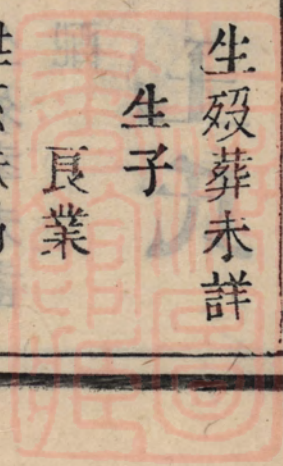 生殁葬未詳
生子
良業